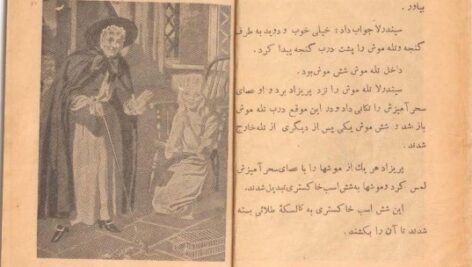 بیاور .
سیندرلا جواب داد: خیلی خوب و دوید به طرف
گنجه و تله موش را پشت درب گنجه پیدا کرد.
داخل تله موش شش موش بود.
سیندرلا تله موش را نزد پریزاد برد و او عصای
سحرآمیزش را تکانی داد و در این موقع درب تله موش
باز شد و شش موش یکی پس از دیگری از تله خارج
شدند.
پریزاد هر یک از موشها را با عصای سحرآمیزش
لمس کرد و موشها به شش اسب خاکستری تبدیل شدند.
این شش اسب خاکستری به کالسکهٔ طلائی بسته
شدند تا آن را بکشند.